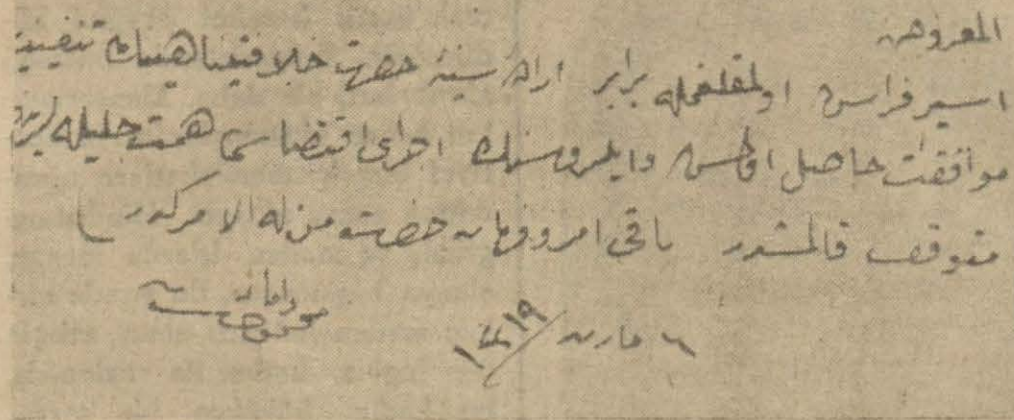 المعروض
اسیر فراش اولمقلغمله برابر اراده سنیه حضرت خلافتپناهینك تنفیذینه
موافقت حاصل اولمش و ایلروسنك اجرای اقتضاسی همت جلیله لرینه
متوقف قالمشدر باقی امر و فرمان حضرت من له الامركدر
داماد
محمود
٦ مارت ٣١٩